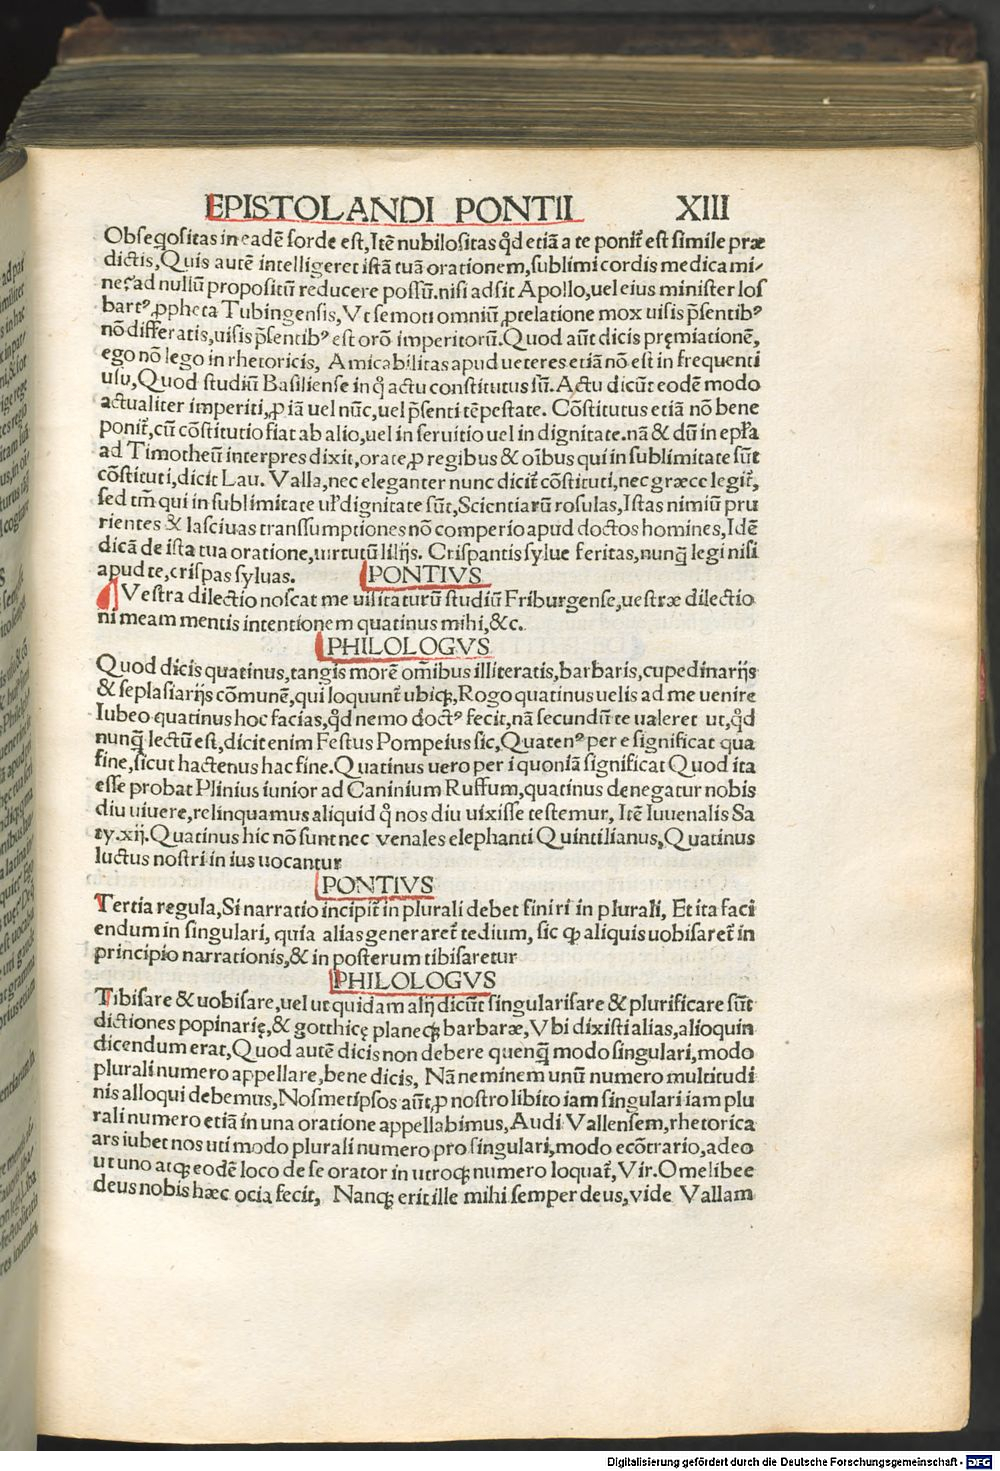 EPISTOLANDI PONTII XIII
Obseqositas in eadē sorde est, Itē nubilositas qd̛ etiā a te ponit̃ est simile præ
dictis, Quis autē intelligeret istā tuā orationem, sublimi cordis medicami⸗
ne, ad nullū propositū reducere possū. nisi adsit Apollo, uel eius minister Ios
bartꝰ, ꝓpheta Tubingensis, Vt semoti omniū, ꝓtelatione mox uisis p̄sentibꝰ
nō differatis, uisis p̄sentibꝰ est orō imperitorū. Quod aūt dicis pręmiationē,
ego nō lego in rhetoricis, Amicabilitas apud ueteres etiā nō est in frequenti
usu, Quod studiū Basiliense in q̊ actu constitutus sū. Actu dicūt eodē modo
actualiter imperiti, ꝓ iā uel nūc, uel p̄senti tēpestate. Cōstitutus etiā nō bene
ponit̃, cū cōstitutio fiat ab alio, uel in seruitio uel in dignitate. nā & dū in ep̄la
ad Timotheū interpres dixit, orate, ꝓ regibus & oībus qui in sublimitate sūt
cōstituti, dicit Lau. Valla, nec eleganter nunc dicit̃ cōstituti, nec græce legit̃,
sed tm̄ qui in sublimitate ul̛ dignitate sūt, Scientiarū rosulas, Istas nimiū pru
rientes & lasciuas transsumptiones nō comperio apud doctos homines, Idē
dicā de ista tua oratione, uirtutū lilijs. Crispantis sylue feritas, nunq̄ legi nisi
apud te, crispas syluas. PONTIVS
Vestra dilectio noscat me uisitaturū studiū Friburgense, uestræ dilectio
ni meam mentis intentionem quatinus mihi, &c.
PHILOLOGVS
Quod dicis quatinus, tangis morē om̄ibus illiteratis, barbaris, cupedinarijs
& seplasiarijs cōmunē, qui loquunt̃ ubiqꝫ, Rogo quatinus uelis ad me uenire
Iubeo quatinus hoc facias, qd̛ nemo doctꝰ fecit, nā secundū te ualeret ut, qd̛
nunq̄ lectū est, dicit enim Festus Pompeius sic, Quatenꝰ per e significat qua
fine, sicut hactenus hac fine. Quatinus uero per i quoniā significat Quod ita
esse probat Plinius iunior ad Caninium Ruffum, quatinus denegatur nobis
diu uiuere, relinquamus aliquid q̊ nos diu uixisse testemur, Itē Iuuenalis Sa
ty. xij. Quatinus hic nō sunt nec venales elephanti Quintilianus, Quatinus
luctus nostri in ius uocantur
PONTIVS
Tertia regula, Si narratio incipit̃ in plurali debet finiri in plurali, Et ita faci
endum in singulari, quia alias generaret̃ tedium, sic ꝙ aliquis uobisaret̃ in
principio narrationis, & in posterum tibisaretur
PHILOLOGVS
Tibisare & uobisare, uel ut quidam alij dicūt singularisare & plurificare sūt
dictiones popinarię, & gotthicę planeqꝫ barbaræ, Vbi dixisti alias, alioquin
dicendum erat, Quod autē dicis non debere quenq̄ modo singulari, modo
plurali numero appellare, bene dicis, Nā neminem unū numero multitudi
nis alloqui debemus, Nosmetipsos aūt, ꝓ nostro libito iam singulari iam plu
rali numero etiā in una oratione appellabimus, Audi Vallensem, rhetorica
ars iubet nos uti modo plurali numero pro singulari, modo ecōtrario, adeo
ut uno atqꝫ eodē loco de se orator in utroqꝫ numero loquat̃, Vir. O melibee
deus nobis hæc ocia fecit, Nanqꝫ erit ille mihi semper deus, vide Vallam
Digitalisierung gefördert durch die Deutsche Forschungsgemeinschaft - DFG